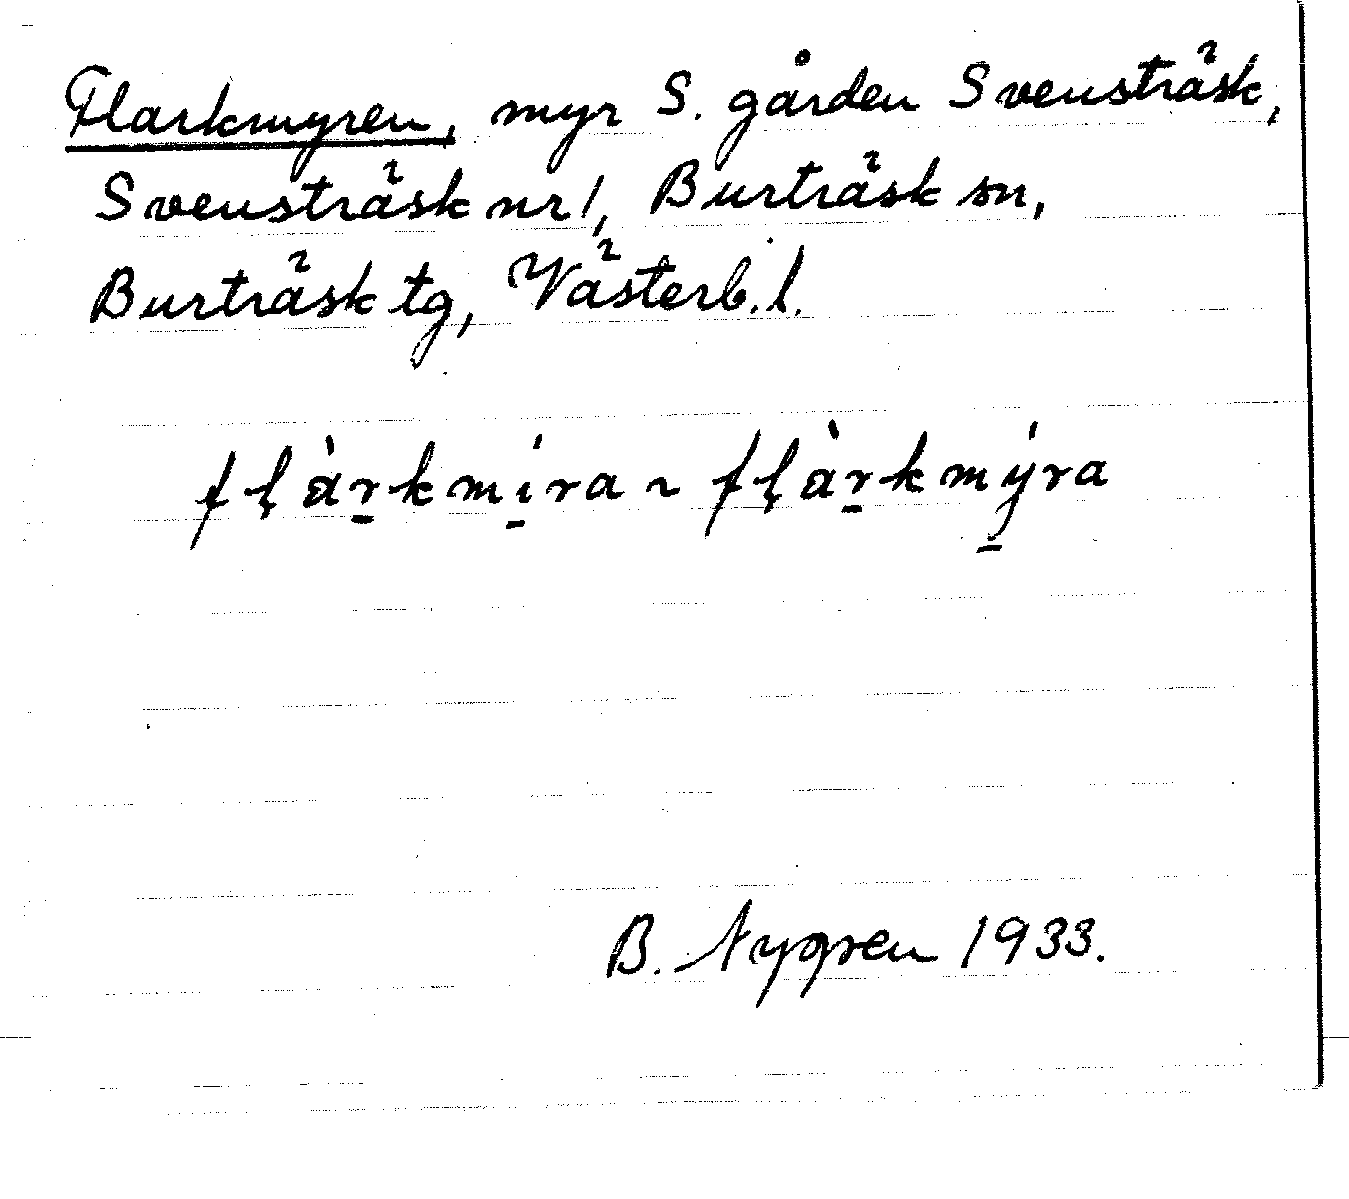 Flarkmyren, myr S. gården Svensträsk,
Svensträsk nr 1, Burträsk sn,
Burträsk tg, Västerb. l.
fḷàr̠kmí̠ra ~ fḷàr̠kmý̠ra
B. Nygren 1933.